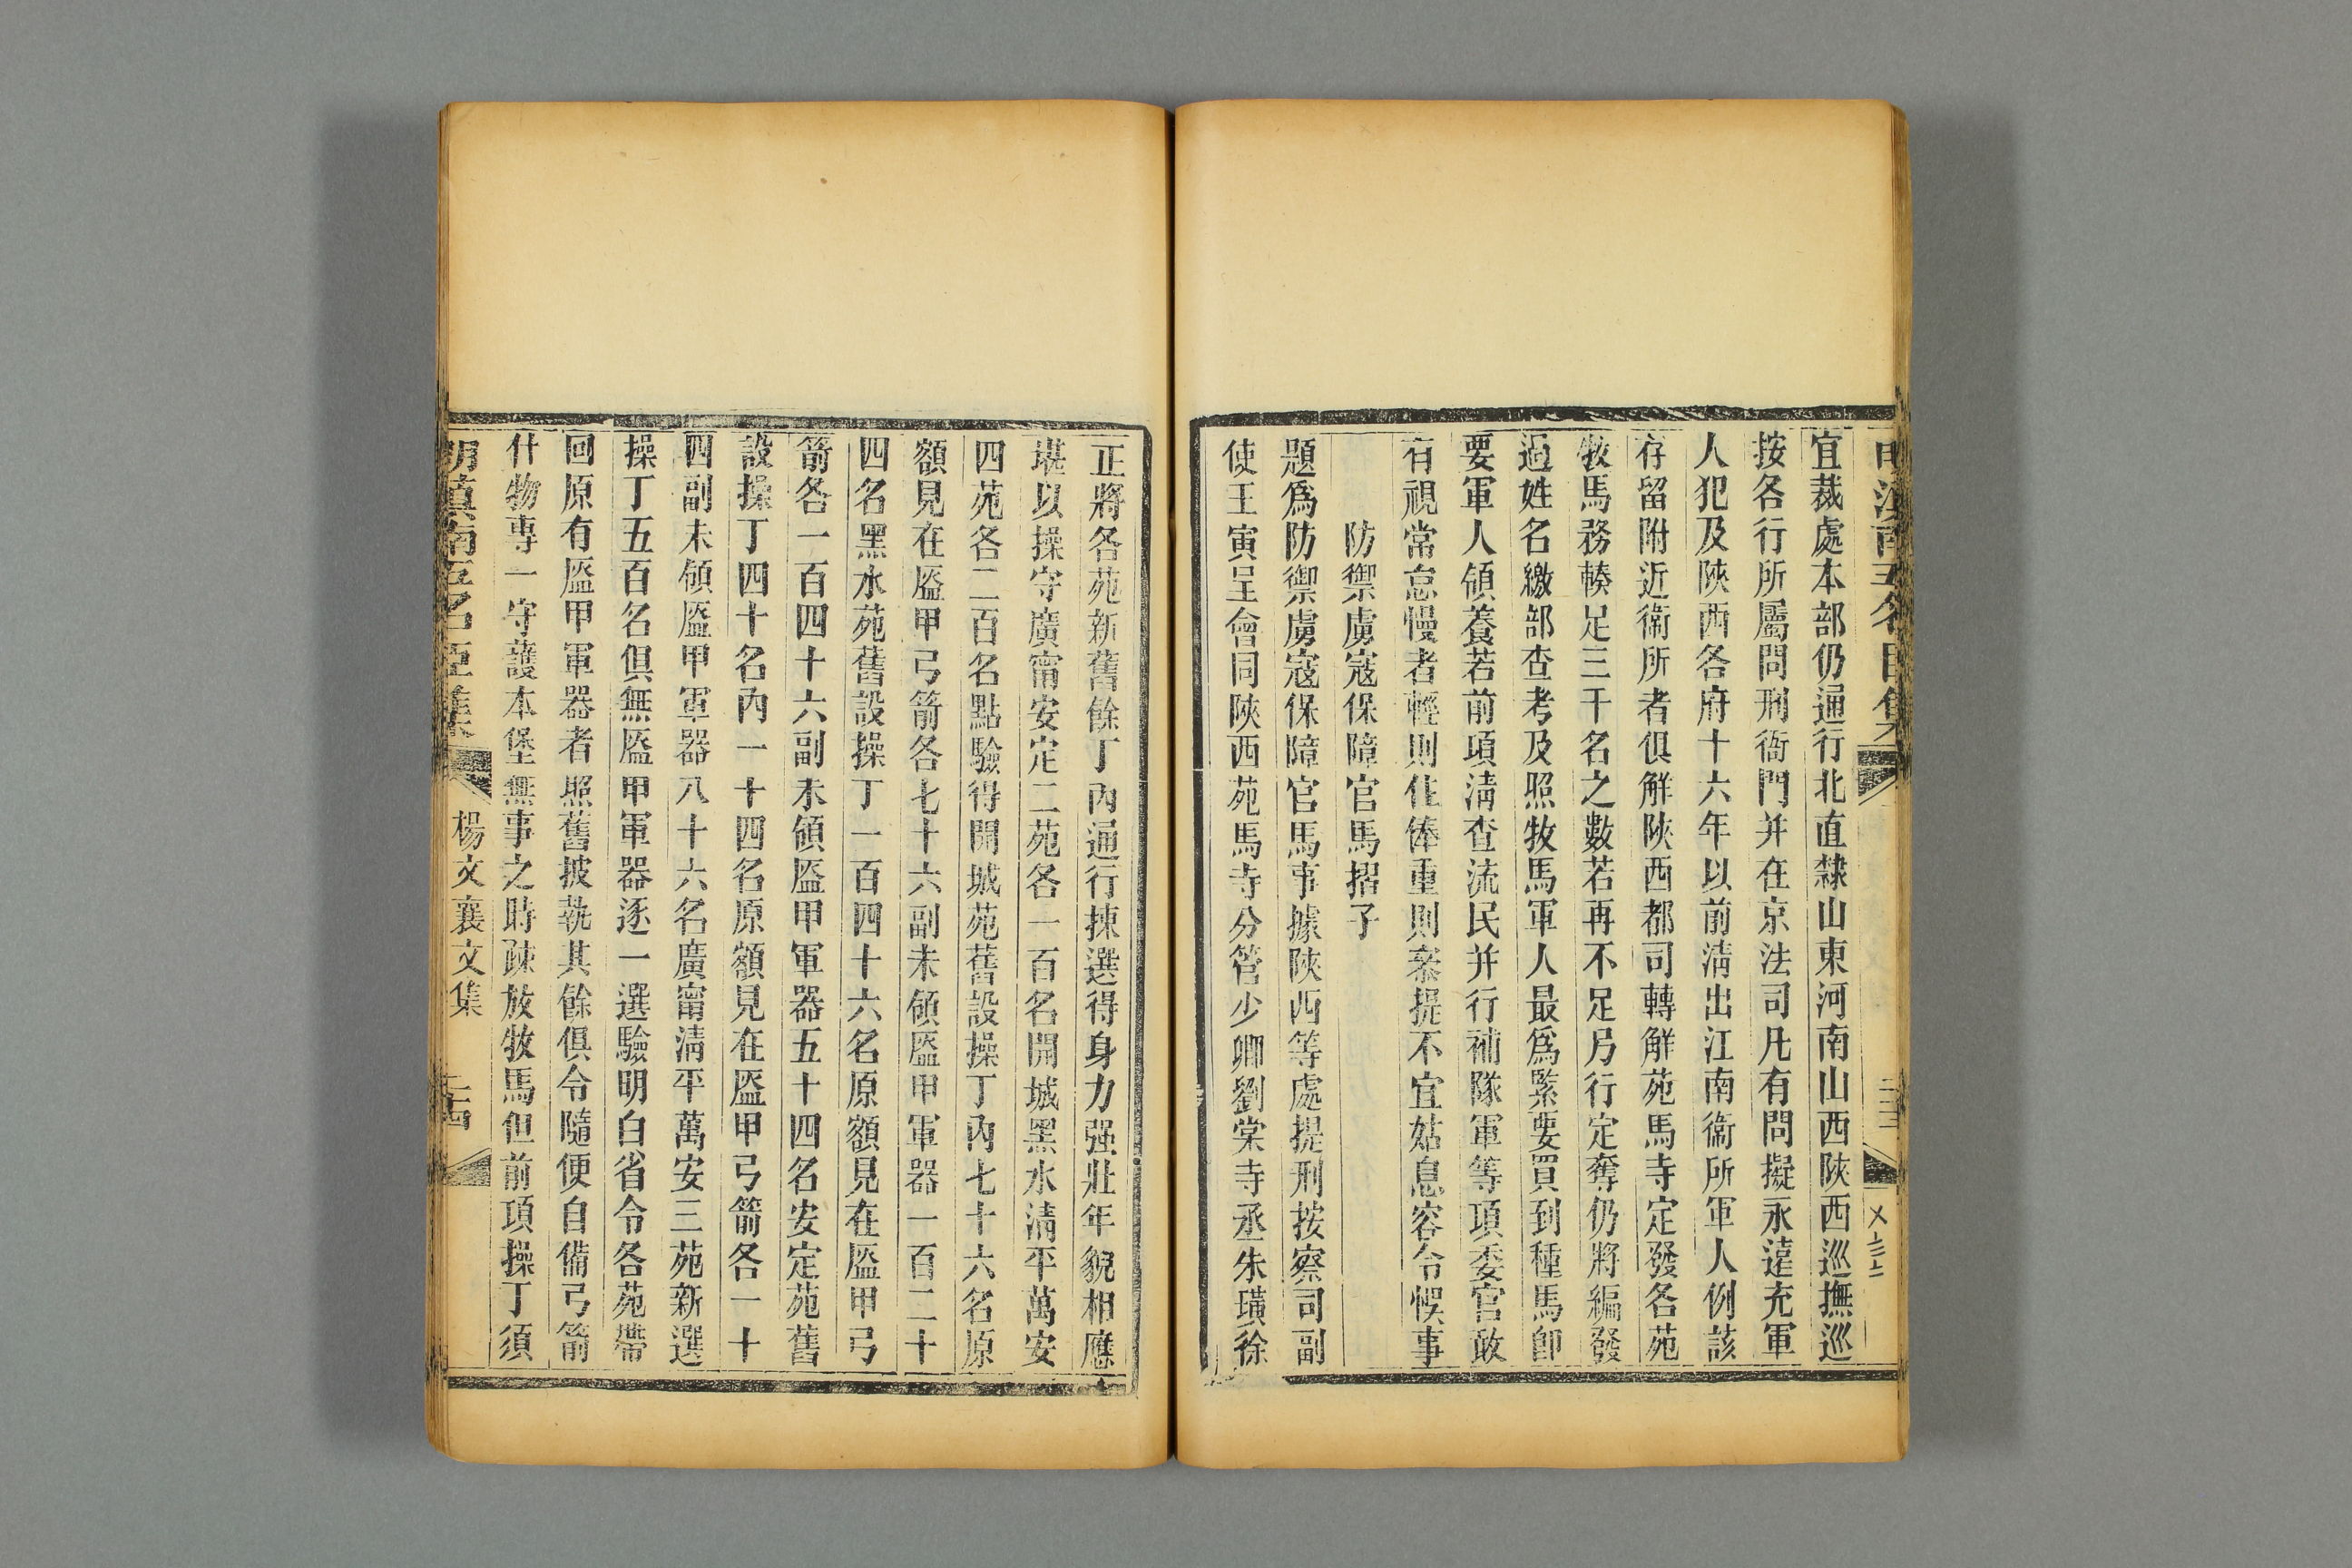 宜裁處本部仍通行北直隸山東河南山西陝西巡撫巡
按各行所屬問刑衙門并在京法司凡有問擬永遠充軍
人犯及陝西各府十六年以前清出江南衞所軍人例該
存留附近衞所者俱解陝西都司轉解苑馬寺定發各苑
牧馬務輳足三千名之數若再不足另行定奪仍將編發
過姓名繳部查考及照牧馬軍人最爲緊要買到種馬卽
要軍人領養若前項清查流民并行補隊軍等項委官敢
有視常怠慢者輕則住俸重則叅提不宜姑息容令悞事
防禦虜寇保障官馬摺子
題爲防禦虜寇保障官馬事據陝西等處提刑按察司副
使王寅呈會同陝西苑馬寺分管少卿劉棠寺丞朱璜徐
正將各苑新舊餘丁內通行揀選得身力强壯年貌相應
堪以操守廣甯安定二苑各一百名開城黑水清平萬安
四苑各二百名點驗得開城苑舊設操丁內七十六名原
額見在盔甲弓箭各七十六副未領盔甲軍器一百二十
四名黑水苑舊設操丁一百四十六名原額見在盔甲弓
箭各一百四十六副未領盔甲軍器五十四名安定苑舊
設操丁四十名內一十四名原額見在盔甲弓箭各一十
四副未領盔甲軍器八十六名廣甯清平萬安三苑新選
操丁五百名俱無盔甲軍器逐一選驗明白省令各苑帶
回原有盔甲軍器者照舊披執其餘俱令隨便自備弓箭
什物專一守護本堡無事之時疎放牧馬但前項操丁須
明滇南五名臣集 楊文襄文集 二十四